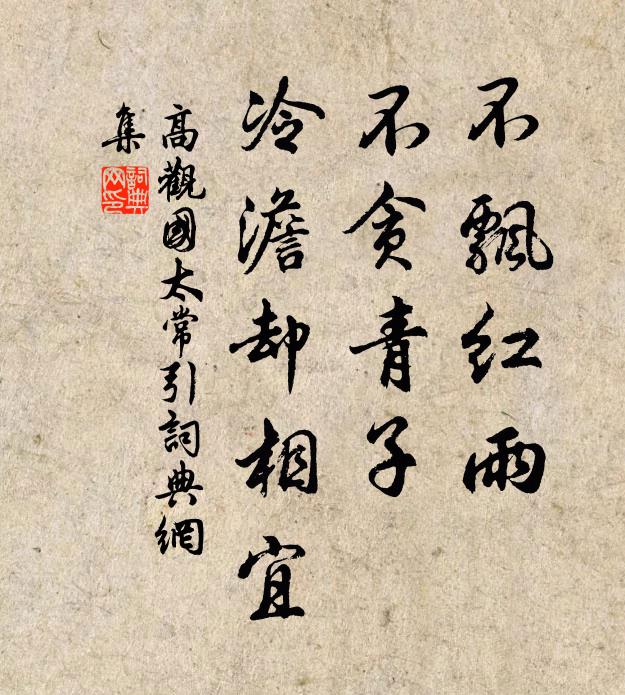 不飄紅雨
不貪青子
冷澹却相宜
高觀國太常引詞典網
集
詞典
网印